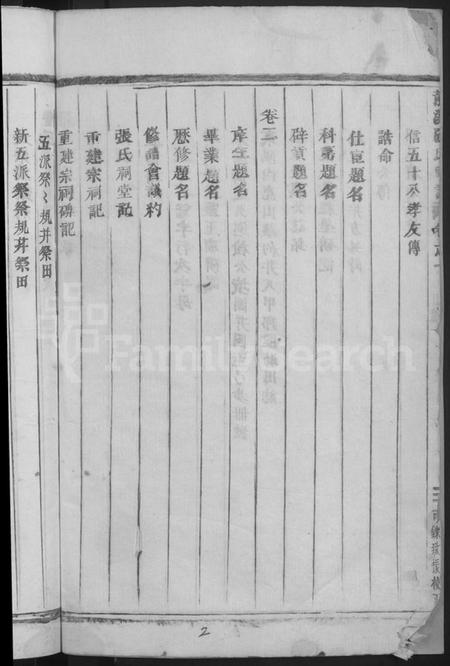 信五十八孝友傳
誥命
仕宦題名
科第題名
辟貢題名
卷二
庠士題名
畢業題名
歷修題名
修譜會議約
張氏祠堂記
重建宗祠記
重建宗祠碑記
五派祭々規并祭田
新五派祭祭規并祭田
2
FamilySearch